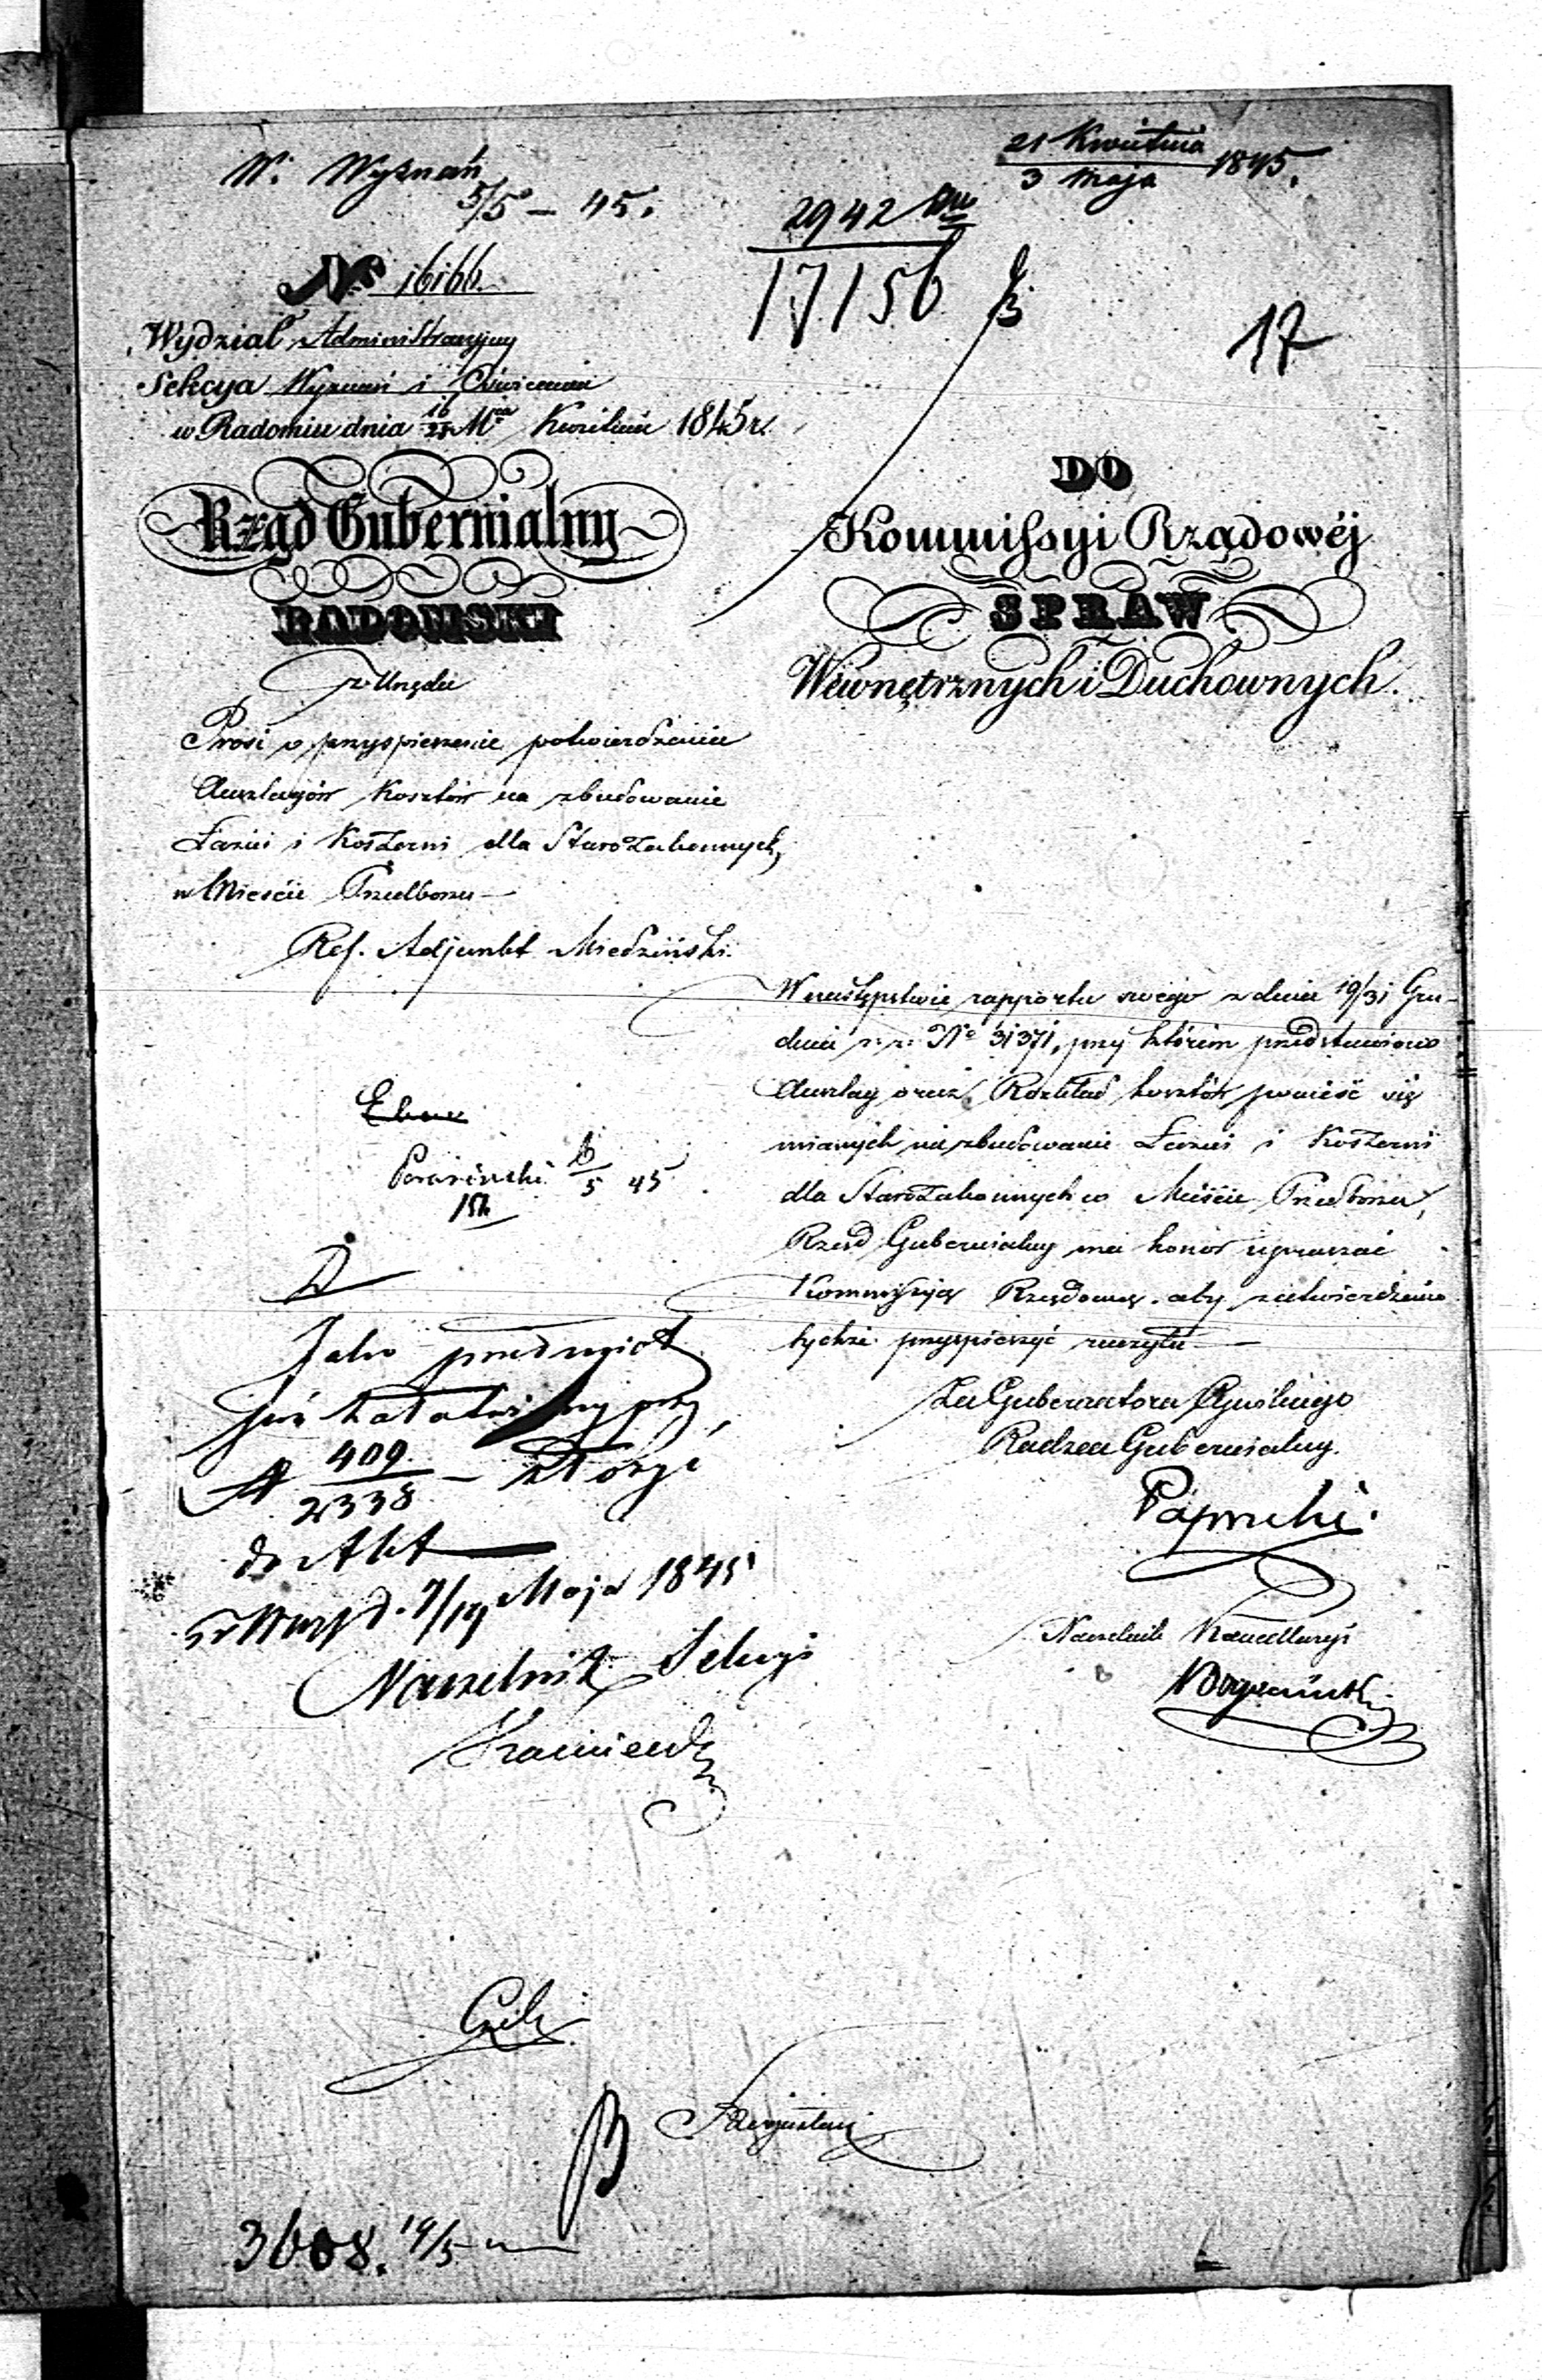 W. Wyznań
5/5 – 45.
21 Kwietnia
3 Maja 1845.
2942
17156
17
No 16166.
Wydział Administracyjny
Sekcya Wyznań i Oświecenia
w Radomiu dnia 16/28 Mca Kwietnia 1845 r.
Rząd Gubernialny
RADOMSKI
z Urzędu
Prosi o przyspieszenie potwierdzenia
Anszlagów Kosztów na zbudowanie
Łazni i Koszerni dla Starozakonnych,
w Mieście Przedborzu —
Ref. Adjunkt Miedziński.
DO
Kommissyi Rządowéj
SPRAW
Wewnętrznych i Duchownych.
W następstwie rapportu swego z dnia 19/31 Gru-
dnia r. z. No 31371, przy którem przedstawiono
Anszlag oraz Rozkład kosztów ponieść się
mianych na zbudowanie Łazni i Koszerni
dla Starozakonnych w Mieście Przedborzu,
Rząd Gubernialny ma honor upraszać
Kommissyą Rządową, aby zatwierdzenie
tychże przyspieszyć raczyła —
Za Gubernatora Cywilnego
Radzca Gubernialny.
Paprocki.
Naczelnik Kancellaryi
6/5 45
Jako przedmiot
już załatwiony przy
N 409/2338 – złożyć
do Akt
d. 7/19 Maja 1845
Naczelnik Sekcyi
3608. 19/5